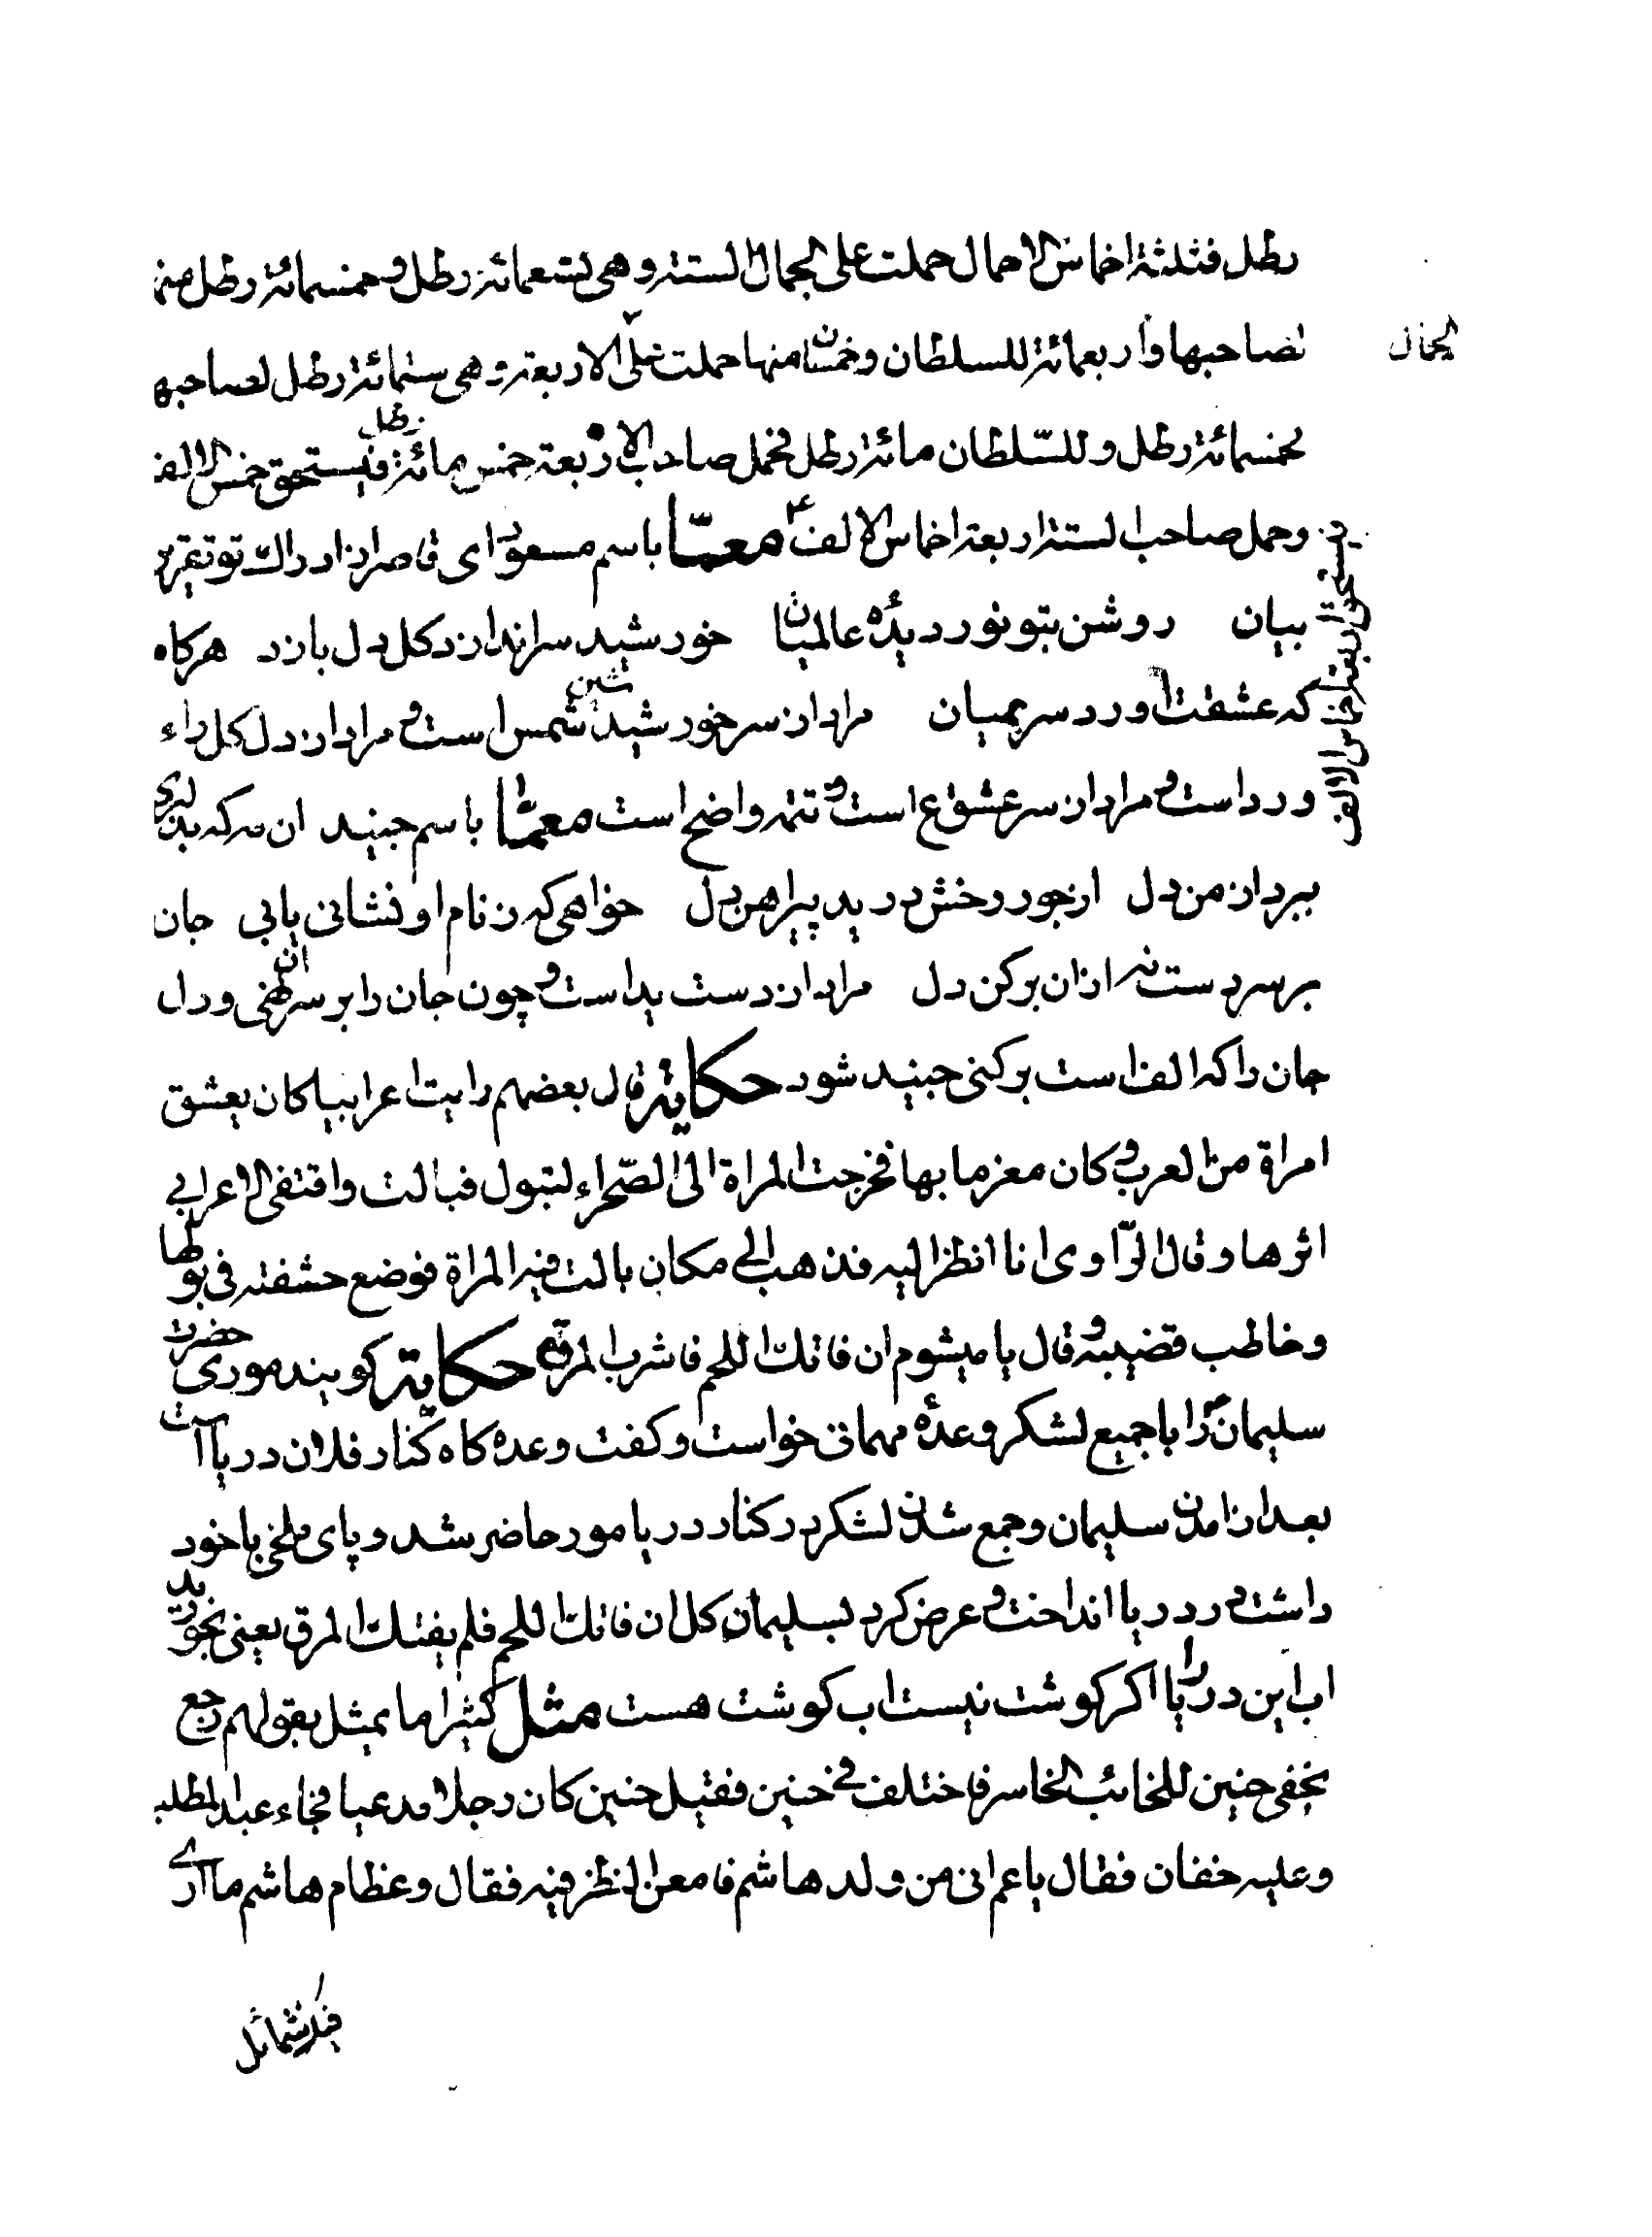 رطل فثلثة اخماس الاحمال حملت على الجمال الستة وهى تسعمائة رطل وخمسمائة رطل منها
لصاحبها واربعمائة للسلطان وخمسان منها حملت على الاربعة وهى ستمائة رطل لصاحبها
الجمال
خمسمائة رطل وللسّلطان مائة رطل فحمل صاحب الاربعة خمس مائة رطل فيستحق خمس الالف
وحمل صاحب الستة اربعة اخماس الالف معمّا باسم مسعود اى قاصر از ادراك تو تقرير
يستحق اربعة اخماس الالف
بيان روشن بتو نور ديدهٔ عالميان خورشيد سر اندازد كل دل بازد هركاه
كه عشقت آورد سر بميان مراد از سر خورشيد شين شمس است و مراد از دل كل راء
ورد است و مراد از سر عشق ع است و تتمه واضح است معمّا باسم جنيد ان مه كه بدلبرى
ببرد از من دل از جور رخش دريد پيراهن دل خواهى كه ز نام او نشانى يابى جان
بر سر دست نه ازان بركن دل مراد از دست يد است و چون جان را بر سر ان نهى و دل
جان را كه الف است بركنى جنيد شود حكاية قال بعضهم رايت اعرابيا كان يعشق
امراة من العرب و كان مغرما بها فخرجت المراة الى الصّحراء لتبول فبالت واقتفى الاعرابي
اثرها وقال الرّاوى انا انظر اليه فذهب الى مكان بالت فيه المراة فوضع حشفته فى بولها
وخاطب قضيبه و قال يا ميشوم ان فاتك اللحم فاشرب المرقة حكاية كويند مورى حضرت
سليمان را با جميع لشكر وعدهٔ مهمانى خواست و كفت وعده كاه كنار فلان درياست
بعد از امدن سليمان و جمع شدن لشكر در كنار دريا مور حاضر شد و پاى ملخى با خود
داشت و در دريا انداخت و عرض كرد بسليمان كل ان فاتك اللحم فلم يفتك المرق يعنى بخوريد
اب اين دريا را اكر كوشت نيست اب كوشت هست مثل كثيرا ما يمثل بقولهم رجع
بخفى حنين للخائب الخاسر فاختلف فى حنين فقيل حنين كان رجلا مدعيا فجاء عبد المطلب
وعليه خفان فقال يا عم انى من ولد هاشم فامعن النظر فيه فقال وعظام هاشم ما ارى
فيك شمائل